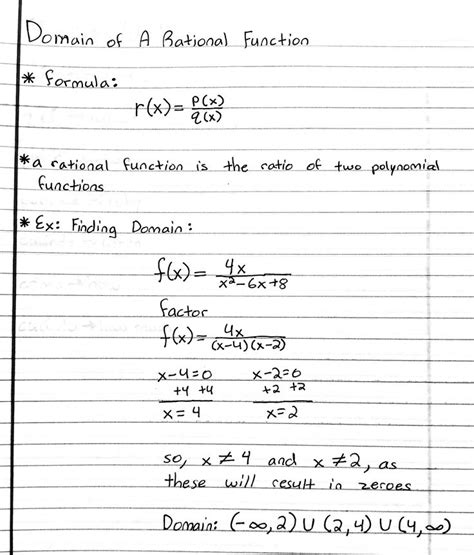 Domain of A Rational Function
* formula:
r(x) = p(x)/q(x)
* a rational function is the ratio of two polynomial
functions
* Ex: Finding Domain:
f(x) = 4x/x²-6x+8
factor
f(x) = 4x/(x-4)(x-2)
x-4=0 x-2=0
+4 +4 +2 +2
x=4 x=2
so, x ≠ 4 and x ≠ 2, as
these will result in zeroes
Domain: (-∞, 2) U (2,4) U (4,∞)